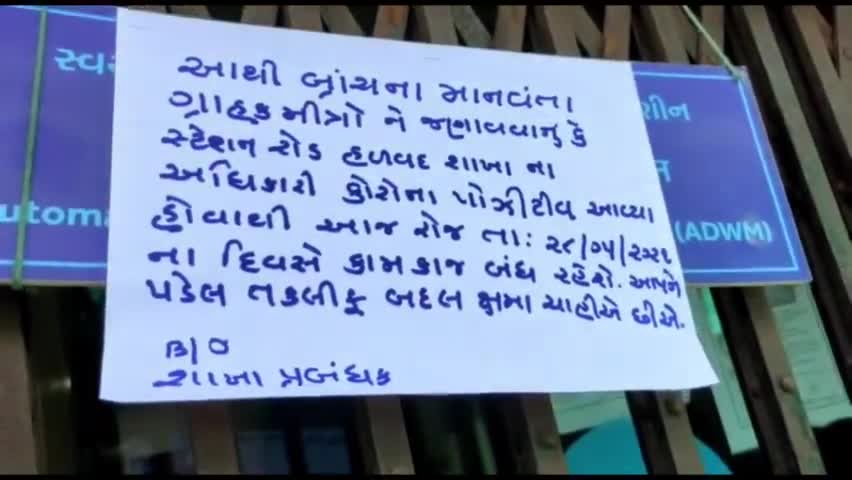 સ્વ
આથી બ્રાંચના માનવંતા
ગ્રાહક મીત્રો ને જણાવવાનુ કે
સ્ટેશન રોડ હળવદ શાખા ના
અધિકારી કોરોના પોઝીટીવ આવ્યા
હોવાથી આજ રોજ તા:
ના દિવસે કામકાજ બંધ રહેશે. આપને
પડેલ તકલીફ બદલ ક્ષમા ચાહીએ છીએ.
B/O
શાખા પ્રબંધક
શીન
utoma
(ADWM)